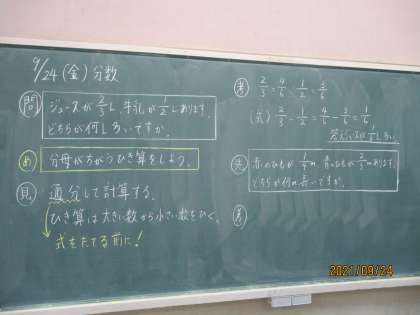 9/24(金)分数
問 ジュースが2/3L、牛乳が1/2Lあります。
どちらが何L多いですか。
め 分母がちがうひき算をしよう。
見 通分して計算する。
ひき算は大きい数から小さい数をひく。
式をたてる前に!
考 2/3=4/6、1/2=3/6
(式) 2/3-1/2=4/6-3/6=1/6
答えジュースが1/6L多い。
赤のひもが m、青のひもが mあります。
どちらが何m長いですか。
考
2021/09/24